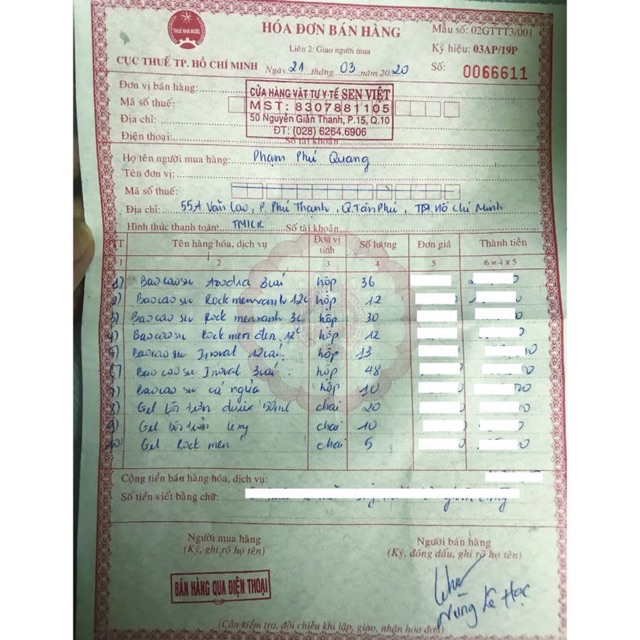 THUẾ NHÀ NƯỚC
CỤC THUẾ TP. HỒ CHÍ MINH
HÓA ĐƠN BÁN HÀNG
Liên 2: Giao người mua
Ngày 21 tháng 03 năm 2020
Mẫu số: 02GTTT3/001
Ký hiệu: 03AP/19P
Số: 0066611
Đơn vị bán hàng:
Mã số thuế:
Địa chỉ:
Điện thoại: Số tài khoản
CỬA HÀNG VẬT TƯ Y TẾ SEN VIỆT
MST: 8307881105
50 Nguyễn Giản Thanh, P.15, Q.10
ĐT: (028) 6264.6906
Họ tên người mua hàng: Phạm Phú Quang
Tên đơn vị:
Mã số thuế:
Địa chỉ: 55A Văn Cao, P. Phú Thạnh, Q Tân Phú, TP. Hồ Chí Minh
Hình thức thanh toán: TM/CK Số tài khoản
TT Tên hàng hóa, dịch vụ Đơn vị tính Số lượng Đơn giá Thành tiền
1 2 3 4 5 6 = 4 x 5
1) Bao cao su 3 cái hộp 36
2) Bao cao su Rockmen xanh 12c hộp 12
3) Bao cao su Rockmen xanh 3c hộp 30
4) Bao cao su Rock men đen 12c hộp 12
Bao cao su Inoval 12 cái hộp 13
Bao cao su Inoval 3 cái hộp 48
Bao cao su cá ngựa hộp 10
8) Gel bôi trơn durex 50ml chai 20
9) Gel bôi trơn chai 10
10) Gel Rock men chai 5
Cộng tiền bán hàng hóa, dịch vụ:
Số tiền viết bằng chữ:
Người mua hàng
(Ký, ghi rõ họ tên)
Người bán hàng
(Ký, đóng dấu, ghi rõ họ tên)
BÁN HÀNG QUA ĐIỆN THOẠI
(Cần kiểm tra, đối chiếu khi lập, giao, nhận hóa đơn)